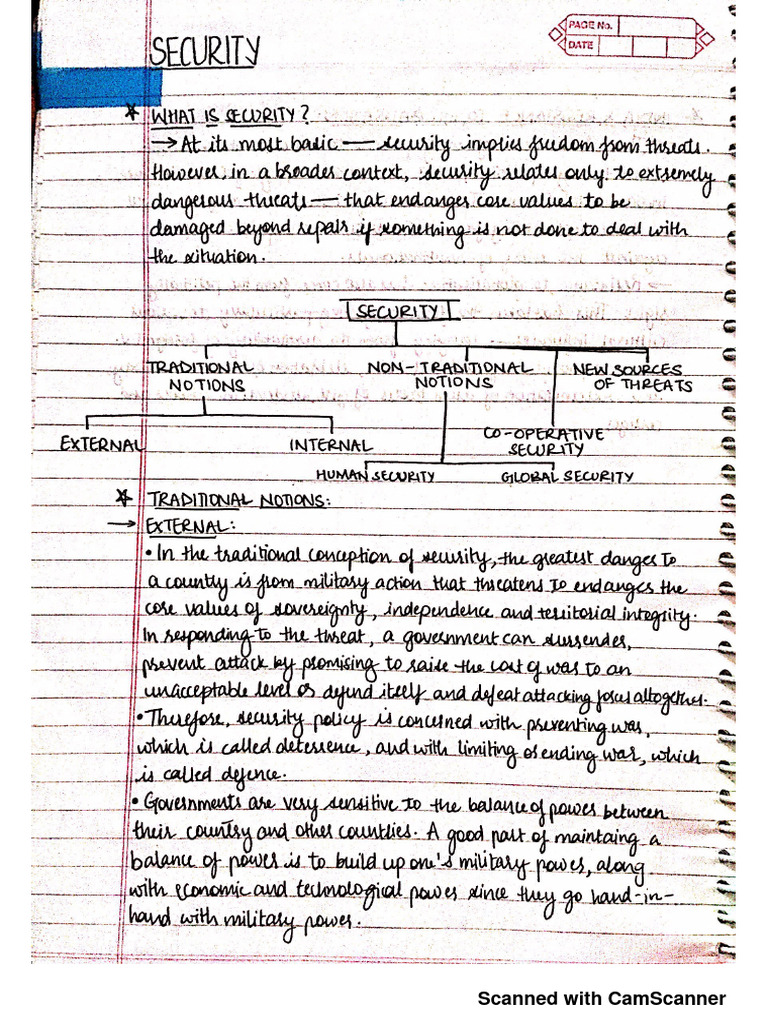 PAGE No.
DATE
SECURITY
* WHAT IS SECURITY?
→ At its most basic — security implies freedom from threats.
However, in a broader context, security relates only to extremely
dangerous threats — that endanger core values to be
damaged beyond repair if something is not done to deal with
the situation.
SECURITY
TRADITIONAL NOTIONS
NON-TRADITIONAL NOTIONS
NEW SOURCES OF THREATS
EXTERNAL
INTERNAL
CO-OPERATIVE SECURITY
HUMAN SECURITY
GLOBAL SECURITY
* TRADITIONAL NOTIONS:
→ EXTERNAL:
• In the traditional conception of security, the greatest danger to
a country is from military action that threatens to endanger the
core values of sovereignty, independence and territorial integrity.
In responding to the threat, a government can surrender,
prevent attack by promising to raise the cost of war to an
unacceptable level or defend itself and defeat attacking forces altogether.
• Therefore, security policy is concerned with preventing war,
which is called deterrence, and with limiting or ending war, which
is called defence.
• Governments are very sensitive to the balance of power between
their country and other countlies. A good part of maintaing a
balance of power is to build up one's military power, along
with economic and technological power since they go hand-in-
hand with military power.
Scanned with CamScanner